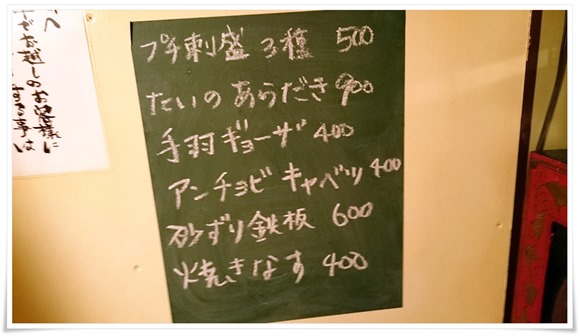 プチ刺盛 3種 500
たいのあらだき 900
手羽ギョーザ 400
アンチョビキャベツ 400
砂ずり鉄板 600
焼きなす 400
へ
でお越しのお客様に
する事は